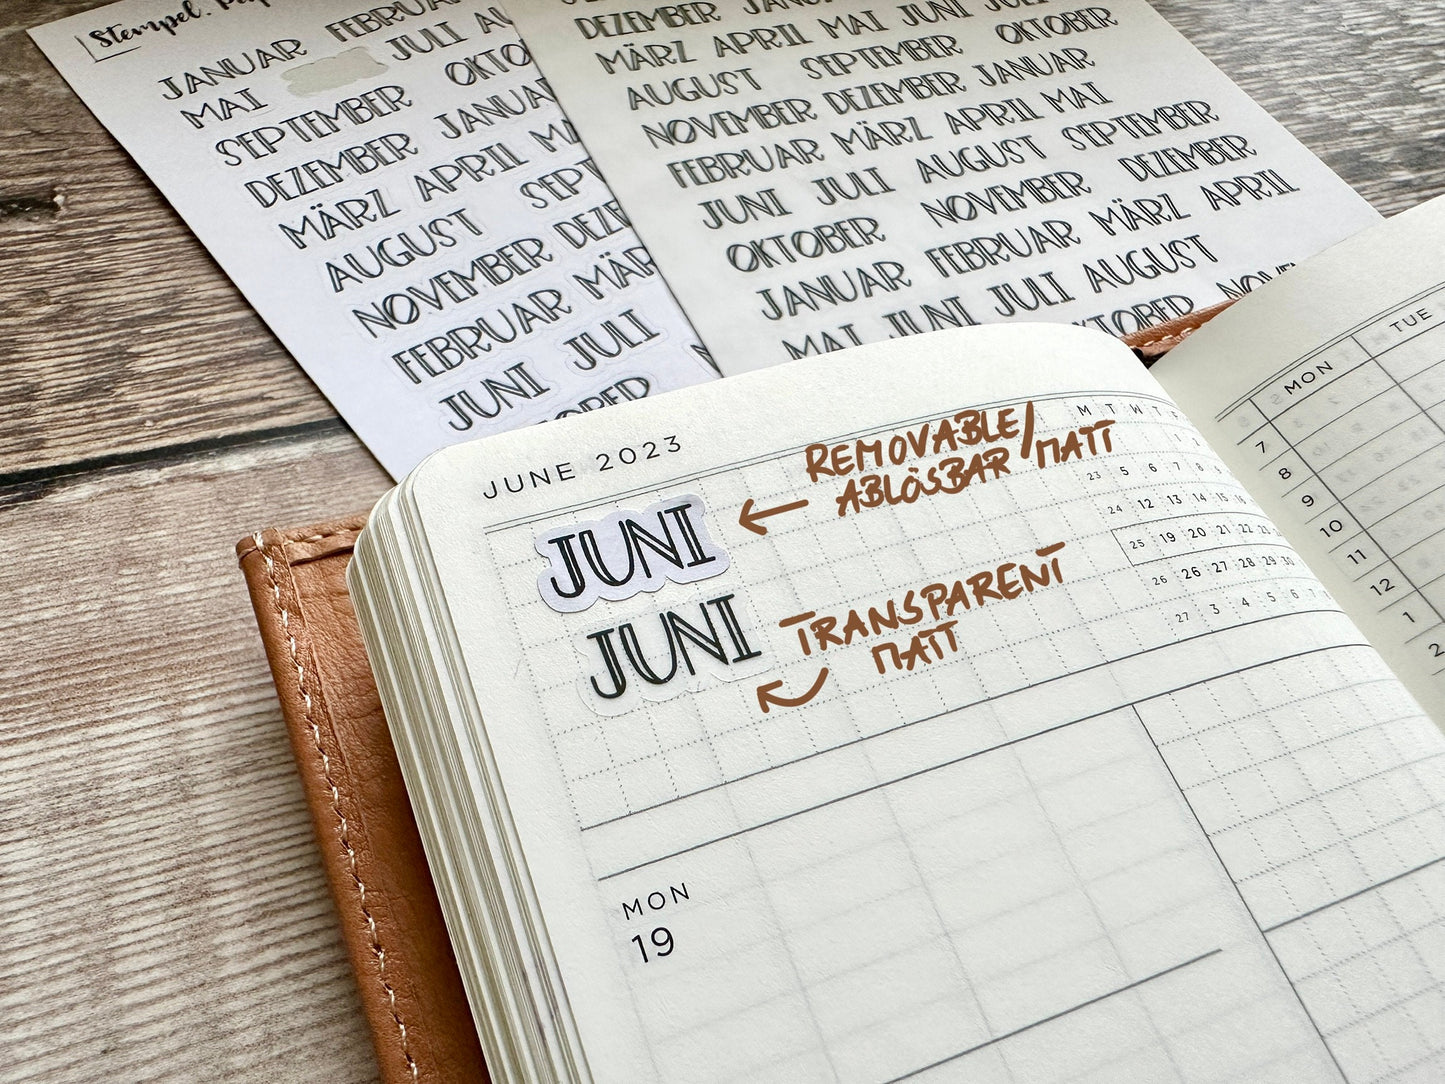 Stempel.
JANUAR FEBRUAR
MAI JULI
SEPTEMBER
DEZEMBER
MÄRZ APRIL
AUGUST
NOVEMBER
FEBRUAR
JUNI JULI
DEZEMBER
MÄRZ APRIL MAI JUNI JULI
AUGUST SEPTEMBER OKTOBER
NOVEMBER DEZEMBER JANUAR
FEBRUAR MÄRZ APRIL MAI
JUNI JULI AUGUST SEPTEMBER
OKTOBER NOVEMBER DEZEMBER
JANUAR FEBRUAR MÄRZ APRIL
MAI JUNI JULI AUGUST
JUNE 2023
JUNI
REMOVABLE/
ABLÖSBAR/MATT
JUNI
TRANSPARENT
MATT
M T W T
23 5 6 7 8 9
24 12 13 14 15 16
25 19 20 21 22 23
26 26 27 28 29 30
27 3 4 5 6 7
MON
19
MON TUE
7
8
9
10
11
12
1
2